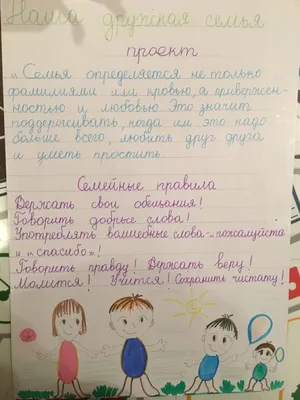 Наша дружная семья
проект
„Семья определяется не только
фамилиями или кровью, а привержен-
ностью и любовью. Это значит
поддерживать, когда им это надо
больше всего, любить друг друга
и уметь простить.
Семейные правила
Держать свои обещания!
Говорить добрые слова!
Употреблять волшебные слова-„пожалуйста
и „спасибо"!
Говорить правду! Держать веру!
Молится! Учится! Сохранить чистату!